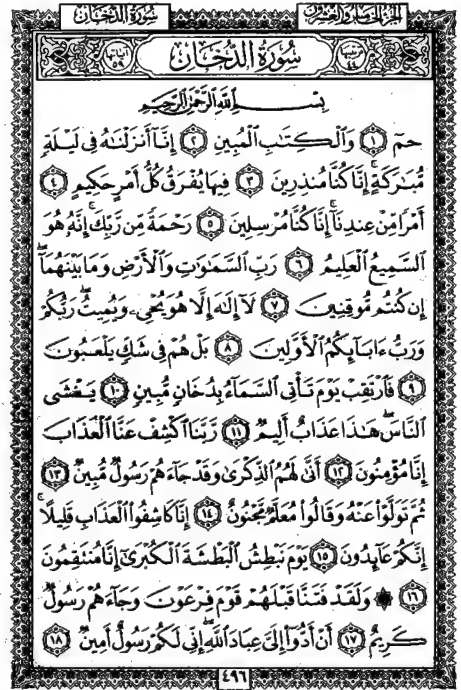 الجزء الخامس والعشرون
سورة الدخان
ترتيبها ٤٤
سُورَةُ الدُّخَانِ
آياتها ٥٩
بِسْمِ اللَّهِ الرَّحْمَٰنِ الرَّحِيمِ
حمٓ ١ وَٱلۡكِتَٰبِ ٱلۡمُبِينِ ٢ إِنَّآ أَنزَلۡنَٰهُ فِي لَيۡلَةٖ
مُّبَٰرَكَةٍۚ إِنَّا كُنَّا مُنذِرِينَ ٣ فِيهَا يُفۡرَقُ كُلُّ أَمۡرٍ حَكِيمٍ ٤
أَمۡرٗا مِّنۡ عِندِنَآۚ إِنَّا كُنَّا مُرۡسِلِينَ ٥ رَحۡمَةٗ مِّن رَّبِّكَۚ إِنَّهُۥ هُوَ
ٱلسَّمِيعُ ٱلۡعَلِيمُ ٦ رَبِّ ٱلسَّمَٰوَٰتِ وَٱلۡأَرۡضِ وَمَا بَيۡنَهُمَآۖ
إِن كُنتُم مُّوقِنِينَ ٧ لَآ إِلَٰهَ إِلَّا هُوَ يُحۡيِۦ وَيُمِيتُۖ رَبُّكُمۡ
وَرَبُّ ءَابَآئِكُمُ ٱلۡأَوَّلِينَ ٨ بَلۡ هُمۡ فِي شَكّٖ يَلۡعَبُونَ
٩ فَٱرۡتَقِبۡ يَوۡمَ تَأۡتِي ٱلسَّمَآءُ بِدُخَانٖ مُّبِينٖ ١٠ يَغۡشَى
ٱلنَّاسَۖ هَٰذَا عَذَابٌ أَلِيمٞ ١١ رَّبَّنَا ٱكۡشِفۡ عَنَّا ٱلۡعَذَابَ
إِنَّا مُؤۡمِنُونَ ١٢ أَنَّىٰ لَهُمُ ٱلذِّكۡرَىٰ وَقَدۡ جَآءَهُمۡ رَسُولٞ مُّبِينٞ ١٣
ثُمَّ تَوَلَّوۡاْ عَنۡهُ وَقَالُواْ مُعَلَّمٞ مَّجۡنُونٌ ١٤ إِنَّا كَاشِفُواْ ٱلۡعَذَابِ قَلِيلًاۚ
إِنَّكُمۡ عَآئِدُونَ ١٥ يَوۡمَ نَبۡطِشُ ٱلۡبَطۡشَةَ ٱلۡكُبۡرَىٰٓ إِنَّا مُنتَقِمُونَ
١٦ ۞ وَلَقَدۡ فَتَنَّا قَبۡلَهُمۡ قَوۡمَ فِرۡعَوۡنَ وَجَآءَهُمۡ رَسُولٞ
كَرِيمٌ ١٧ أَنۡ أَدُّوٓاْ إِلَيَّ عِبَادَ ٱللَّهِۖ إِنِّي لَكُمۡ رَسُولٌ أَمِينٞ ١٨
٤٩٦